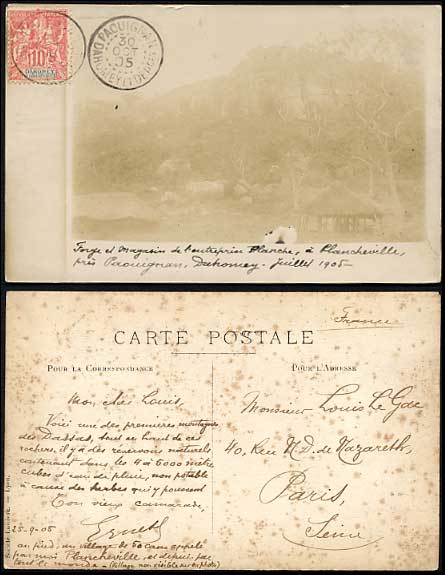 DAHOMEY
10
PAOUIGNAN
30
OCT
05
Forge et magasin de l'entreprise Planche, à Plancheville,
près Paouignan, Dahomey - Juillet 1905
France
CARTE POSTALE
POUR LA CORRESPONDANCE
POUR L'ADRESSE
Mon cher Louis,
Voici une des premières montagnes
des Dassas, tout en haut de ces
rochers, il y a des réservoirs naturels
contenant dans les 4 à 6000 mètres
cubes d'eau de pluie, non potable
à cause des herbes qui y poussent
Ton vieux camarade,
Ernest
25-9-05
au pied, un village de 60 cases appelé
par moi Plancheville, et depuis par
tout le monde - (Village non visible sur ce photo)
Monsieur Louis Le Gac
40, Rue N. D. de Nazareth,
Paris,
Seine